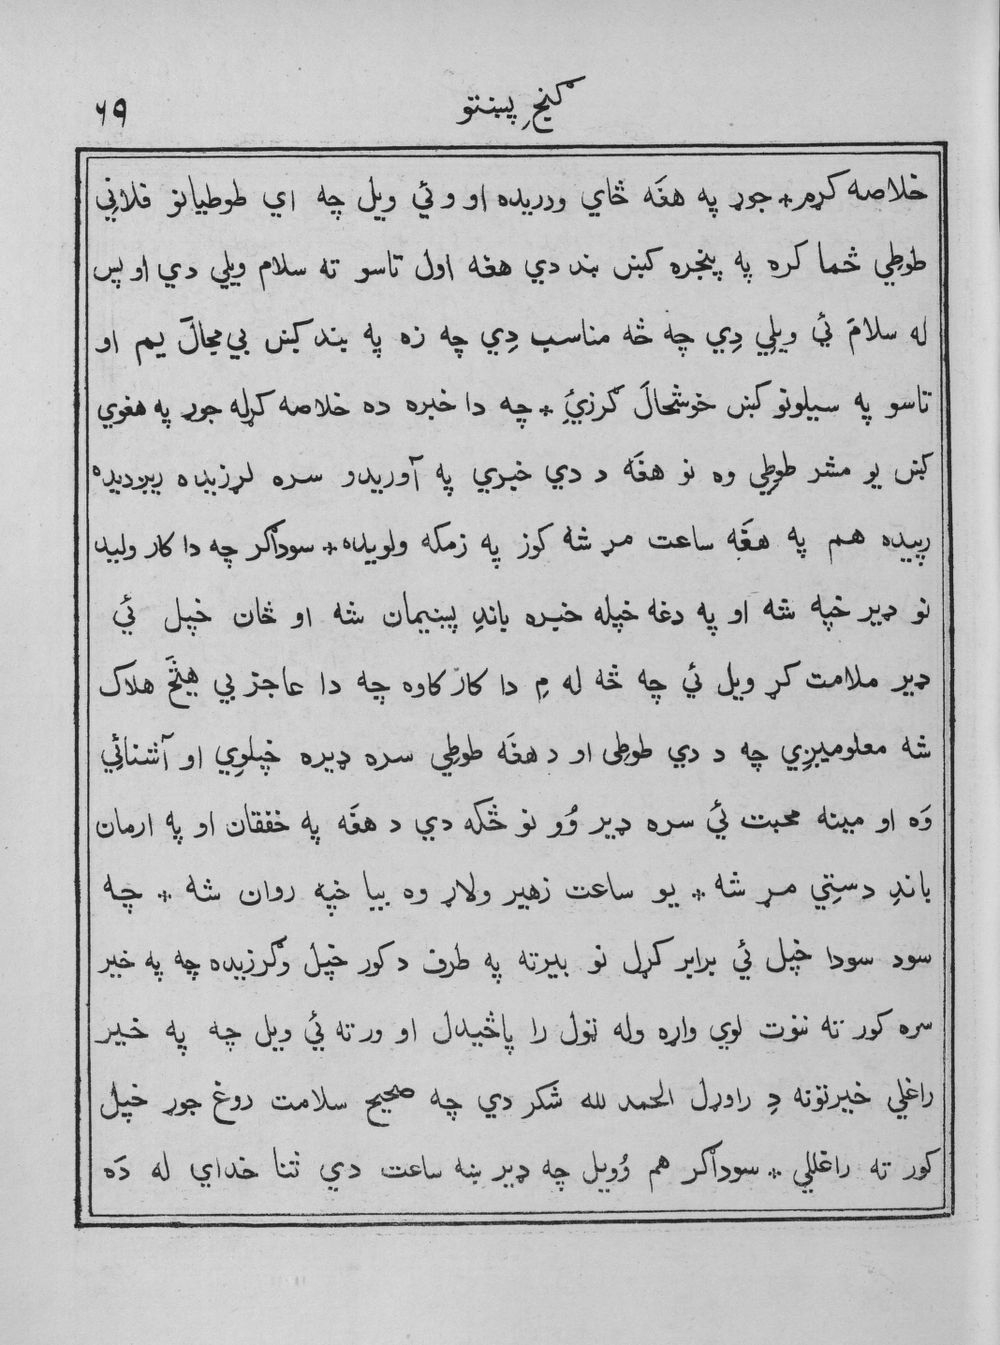 گنجِ پښتو ۶۹
خلاصه کړم * جوړ په هغَه ځاي ودریده او وئي ویل چه اي طوطیانو فلانِي
طوطِي ځما کره په پنجره کښ بند دي هغه اول تاسو ته سلام ویلي دي او پس
له سلامَ ئي ویلِي دِي چه څه مناسب دِي چه زه په بند کښ بي مجالَ یم او
تاسو په سیلونو کښ خوشحالَ ګرزئِ * چه دا خبره ده خلاصه کړله جوړ په هغوي
کښ یو مشر طوطِي وه نو هغَه د دي خبري په آوریدو سره لړزیده ریږدیده
رپیده هم په هغَه ساعت مړ شهٔ کوز په زمکه ولویده * سوداګر چه دا کار ولید
نو ډیر خپه شه او په دغه خپله خبره باندِ پښیمان شه او ځان خپل ئي
ډیر ملامت کړ ویل ئي چه څهٔ له مِ دا کار کاوه چه دا عاجز بي هیڅَ هلاک
شه معلومیږِي چه د دي طوطِی او د هغَه طوطِي سره ډیره خپلوِي او آشنائِي
وَه او مینه محبت ئي سره ډیر وُو نو ځکه دي د هغَه په خفقان او په ارمان
باندِ دستِي مړ شه * یو ساعت زهیر ولاړ وه بیا خپه روان شه * چه
سود سودا خپل ئي برابر کړل نو بیرته په طرف د کور خپل وګرزیده چه په خیر
سره کور ته ننوت لوي واړه وله ټول را پاڅیدل او ورته ئي ویل چه په خیر
راغلي خیرنوَنه دِ راوړل الحمد لله شکر دي چه صحیح سلامت روغ جوړ خپل
کور ته راغللي * سوداګر هم وُویل چه ډیر ښه ساعت دي ثنا خداي له دَه